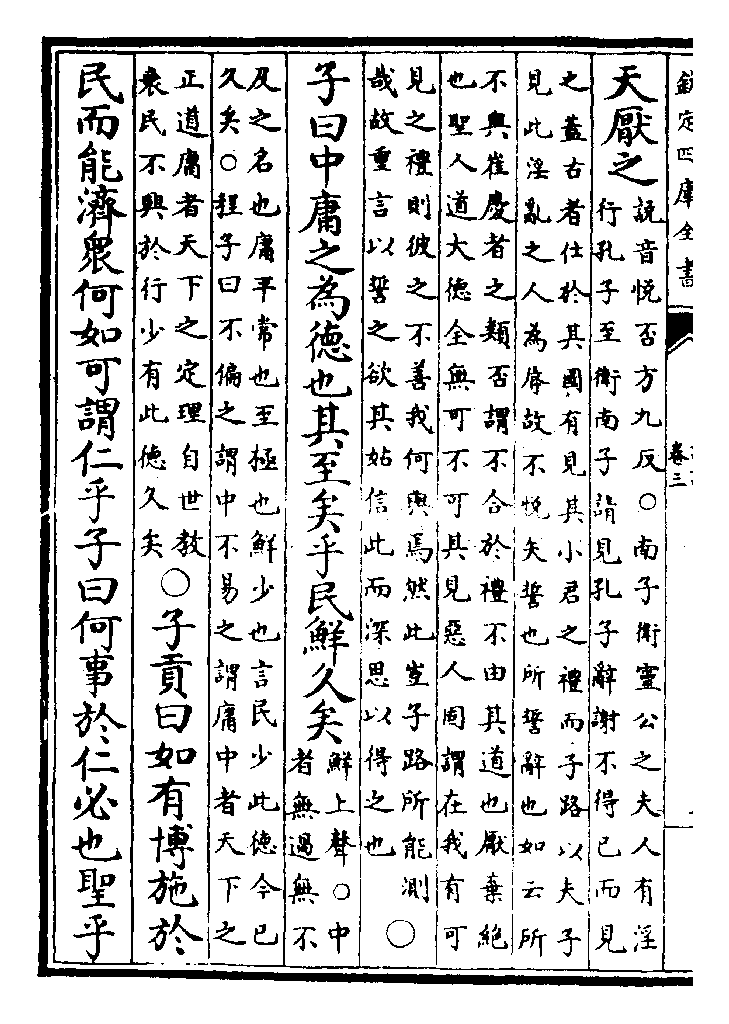 欽定四庫全書
卷三
天厭之
說音悅否方九反○南子衛靈公之夫人有淫
行孔子至衛南子請見孔子辭謝不得已而見
之蓋古者仕於其國有見其小君之禮而子路以夫子
見此淫亂之人為辱故不悅矢誓也所誓辭也如云所
不與崔慶者之類否謂不合於禮不由其道也厭棄絶
也聖人道大德全無可不可其見惡人固謂在我有可
見之禮則彼之不善我何與焉然此豈子路所能測
哉故重言以誓之欲其姑信此而深思以得之也
○
子曰中庸之為德也其至矣乎民鮮久矣
鮮上聲○中
者無過無不
及之名也庸平常也至極也鮮少也言民少此德今已
久矣○程子曰不偏之謂中不易之謂庸中者天下之
正道庸者天下之定理自世教
衰民不興於行少有此德久矣
○子貢曰如有博施於
民而能濟衆何如可謂仁乎子曰何事於仁必也聖乎